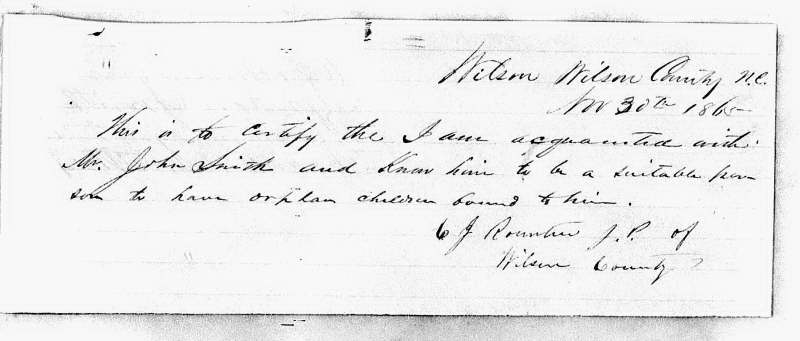 Wilson Wilson County N.C.
Nov 30th 1865
This is to certify the I am acquainted with
Mr. John Smith and Know him to be a suitable per
son to have orphan children bound to him.
C J Rountree J.P. of
Wilson County